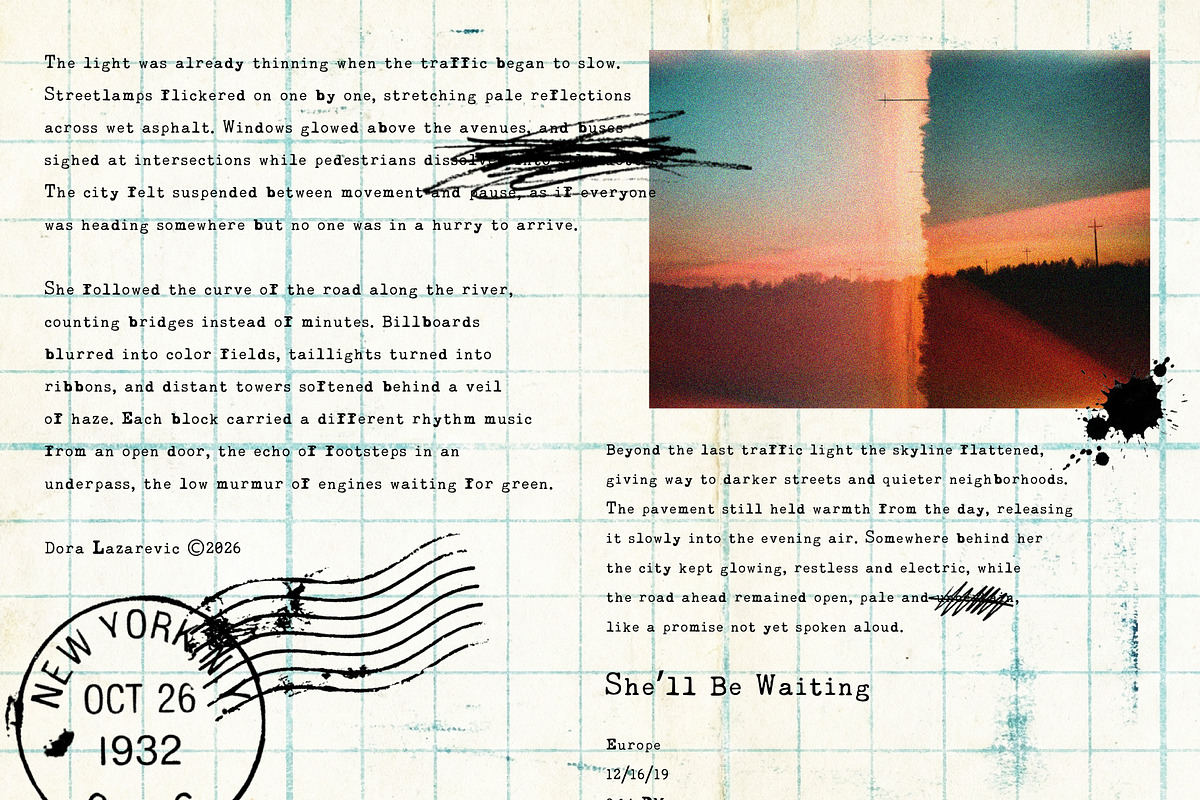 The light was already thinning when the traffic began to slow.
Streetlamps flickered on one by one, stretching pale reflections
across wet asphalt. Windows glowed above the avenues, and buses
sighed at intersections while pedestrians
The city felt suspended between movement and pause, as if everyone
was heading somewhere but no one was in a hurry to arrive.
She followed the curve of the road along the river,
counting bridges instead of minutes. Billboards
blurred into color fields, taillights turned into
ribbons, and distant towers softened behind a veil
of haze. Each block carried a different rhythm music
from an open door, the echo of footsteps in an
underpass, the low murmur of engines waiting for green.
Dora Lazarevic ©2026
NEW YORK, N.Y.
OCT 26
1932
Beyond the last traffic light the skyline flattened,
giving way to darker streets and quieter neighborhoods.
The pavement still held warmth from the day, releasing
it slowly into the evening air. Somewhere behind her
the city kept glowing, restless and electric, while
the road ahead remained open, pale and
like a promise not yet spoken aloud.
She'll Be Waiting
Europe
12/16/19